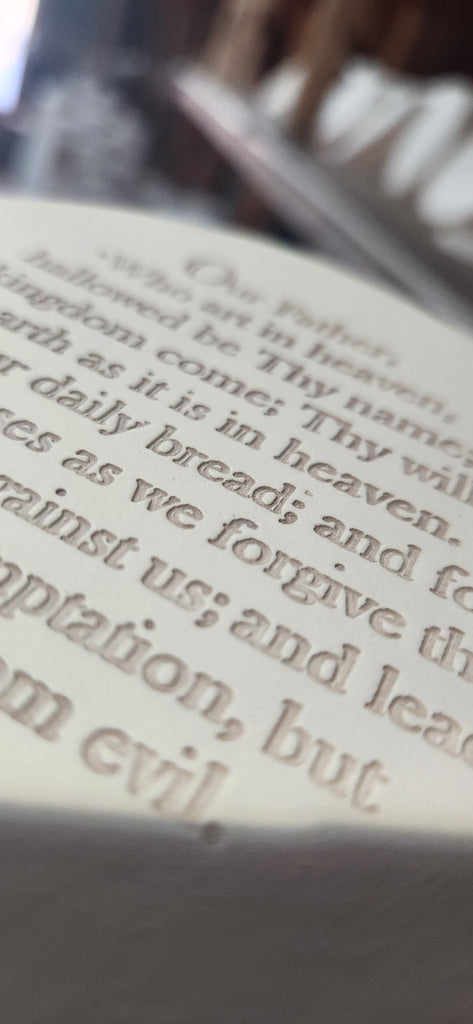 Our Father,
Who art in heaven,
hallowed be Thy name;
kingdom come; Thy will
arth as it is in heaven.
r daily bread; and fo
ses as we forgive th
gainst us; and lead
mptation, but
om evil.